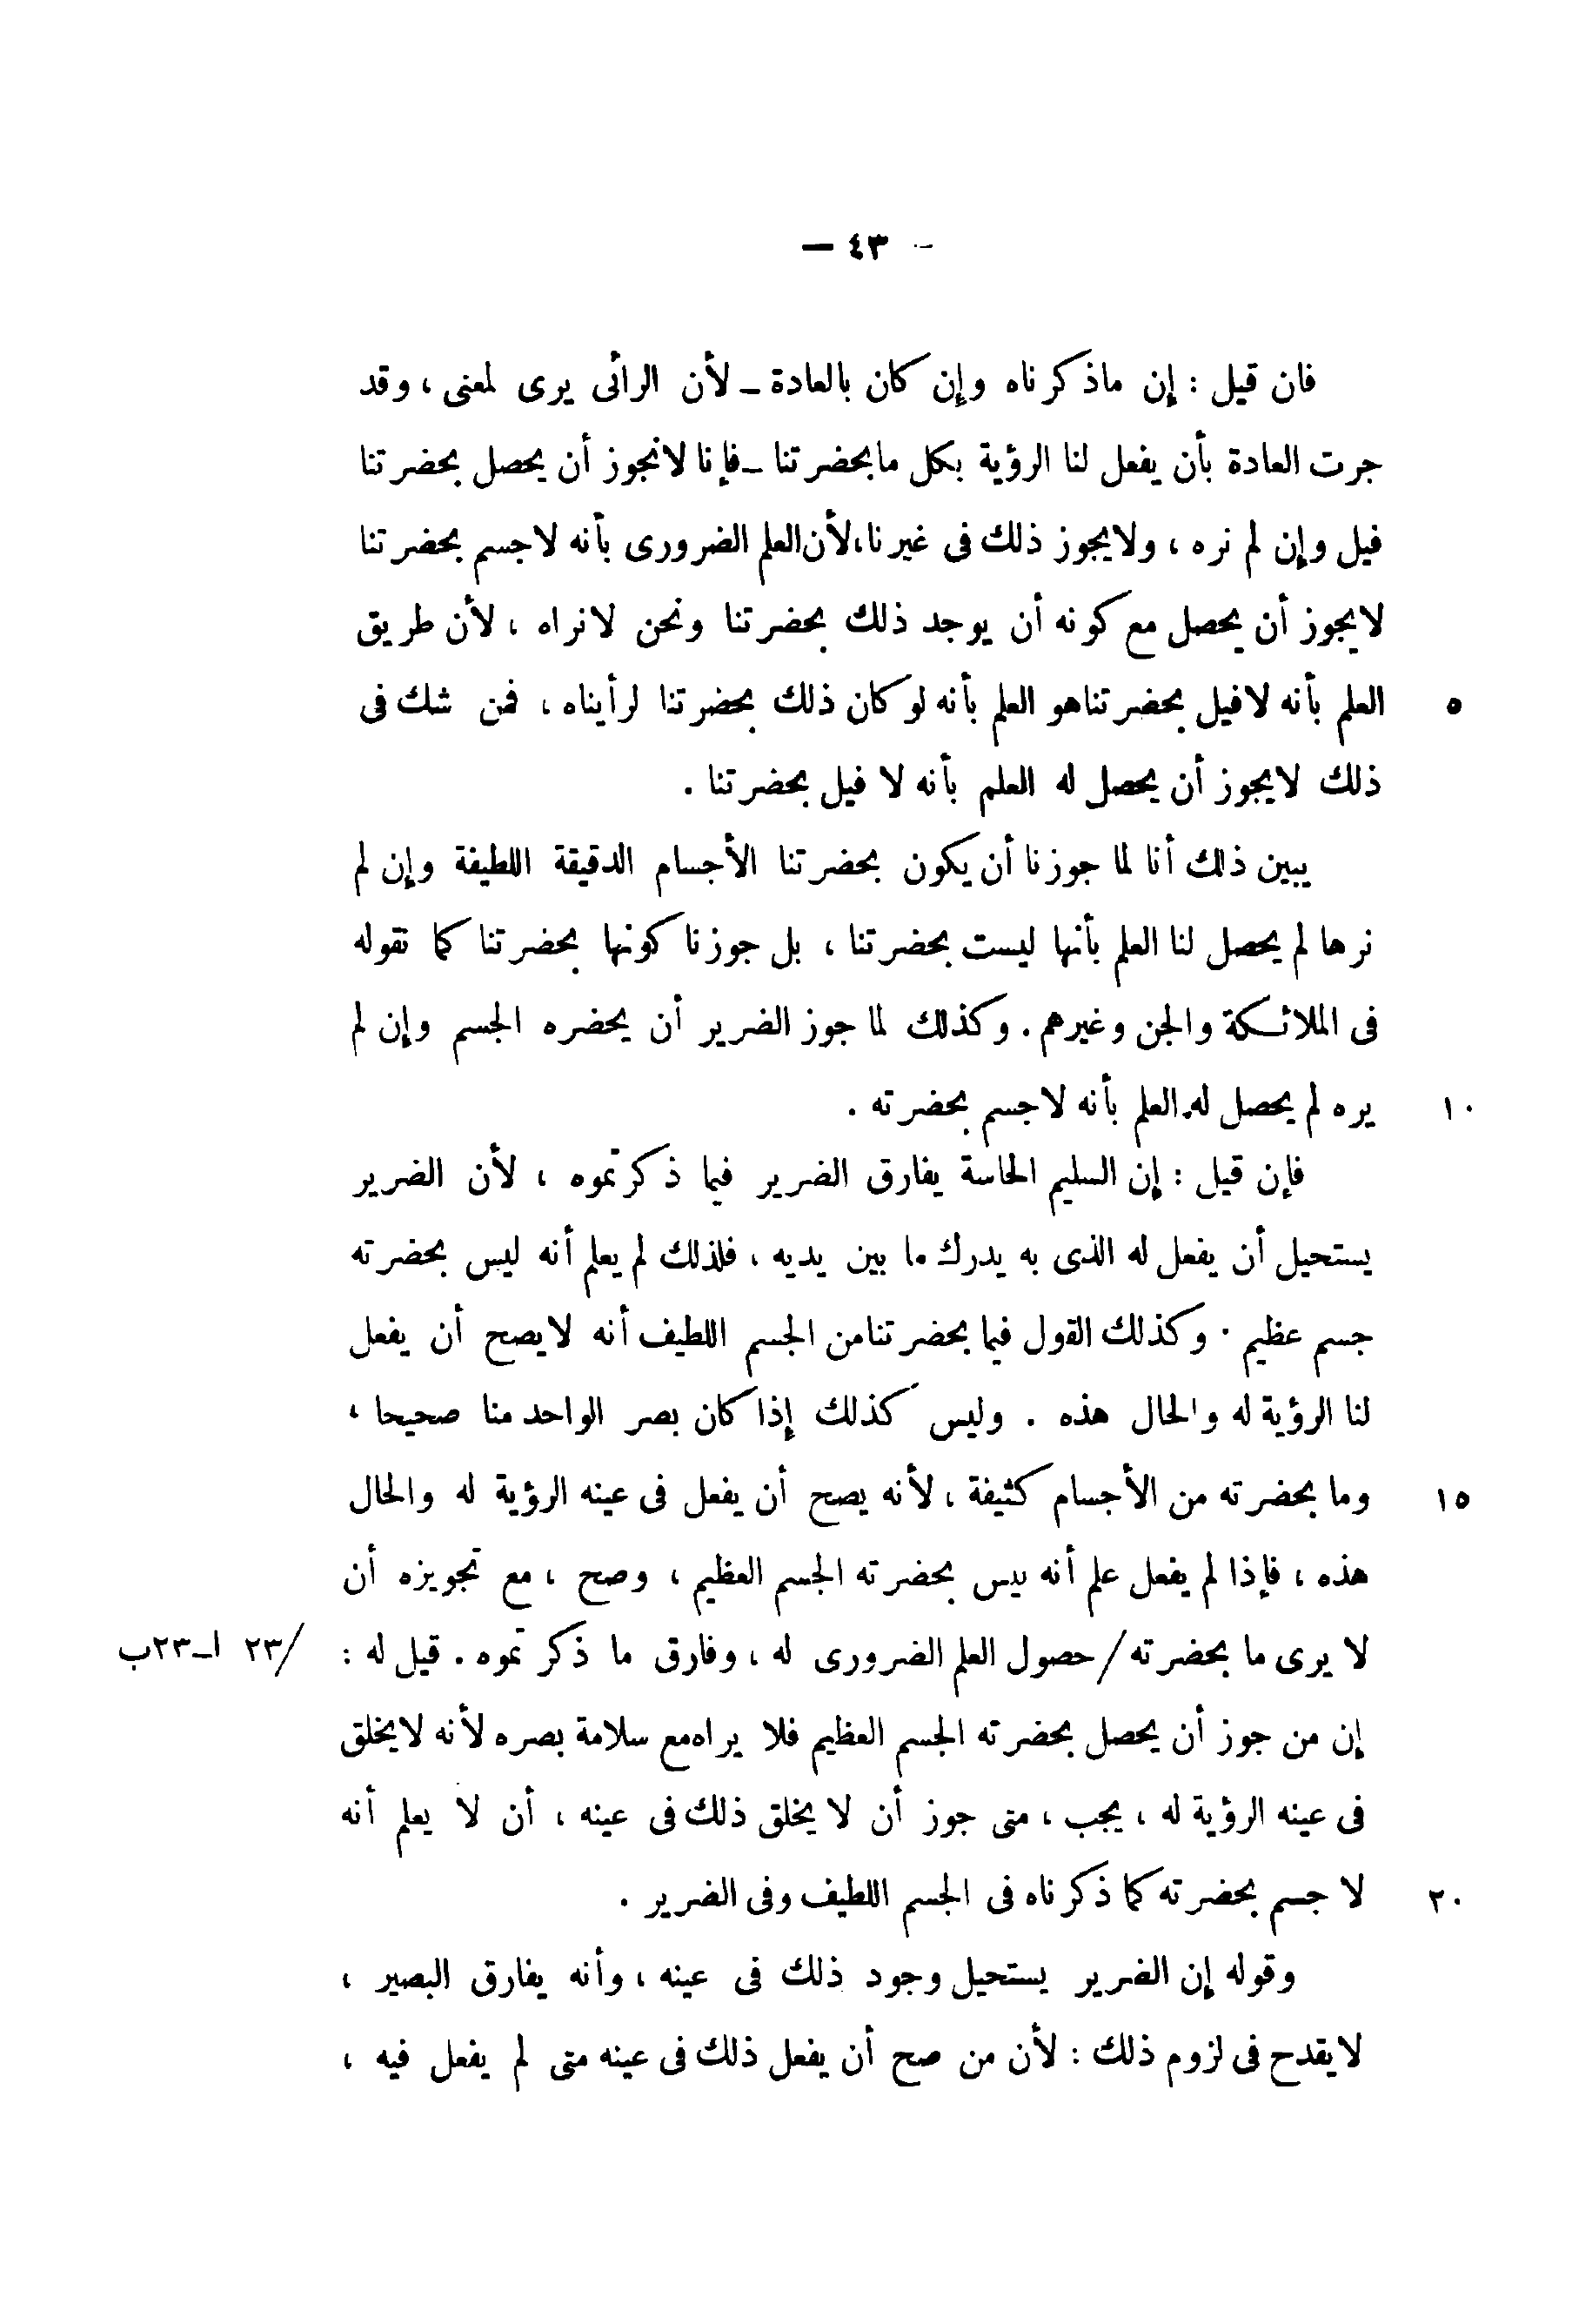 - ٤٣ —
فان قيل : إن ماذكرناه وإن كان بالعادة ـ لأن الرائى يرى لمعنى ، وقد
جرت العادة بأن يفعل لنا الرؤية بكل مابحضرتنا ـ فإنا لانجوز أن يحصل بحضرتنا
فيل وإن لم نره ، ولايجوز ذلك فى غيرنا،لأن العلم الضرورى بأنه لاجسم بحضرتنا
لايجوز أن يحصل مع كونه أن يوجد ذلك بحضرتنا ونحن لانراه ، لأن طريق
العلم بأنه لافيل بحضرتناهو العلم بأنه لو كان ذلك بحضرتنا لرأيناه ، فمن شك فى ٥
ذلك لايجوز أن يحصل له العلم بأنه لا فيل بحضرتنا .
يبين ذلك أنا لما جوزنا أن يكون بحضرتنا الأجسام الدقيقة اللطيفة وإن لم
نرها لم يحصل لنا العلم بأنها ليست بحضرتنا ، بل جوزنا كونها بحضرتنا كما نقوله
فى الملائكة والجن وغيرهم . وكذلك لما جوز الضرير أن يحضره الجسم وإن لم
يره لم يحصل له العلم بأنه لاجسم بحضرته . ١٠
فإن قيل : إن السليم الحاسة يفارق الضرير فيما ذكرتموه ، لأن الضرير
يستحيل أن يفعل له الذى به يدرك ما بين يديه ، فلذلك لم يعلم أنه ليس بحضرته
جسم عظيم . وكذلك القول فيما بحضرتنامن الجسم اللطيف أنه لايصح أن يفعل
لنا الرؤية له والحال هذه . وليس كذلك إذا كان بصر الواحد منا صحيحا ،
وما بحضرته من الأجسام كثيفة ، لأنه يصح أن يفعل فى عينه الرؤية له والحال ١٥
هذه ، فإذا لم يفعل علم أنه ليس بحضرته الجسم العظيم ، وصح ، مع تجويزه أن
لا يرى ما بحضرته / حصول العلم الضرورى له ، وفارق ما ذكرتموه . قيل له : /٢٣ ا ـ ٢٣ب
إن من جوز أن يحصل بحضرته الجسم العظيم فلا يراه مع سلامة بصره لأنه لايخلق
فى عينه الرؤية له ، يجب ، متى جوز أن لا يخلق ذلك فى عينه ، أن لا يعلم أنه
لا جسم بحضرته كما ذكرناه فى الجسم اللطيف وفى الضرير . ٢٠
وقوله إن الضرير يستحيل وجود ذلك فى عينه ، وأنه يفارق البصير ،
لايقدح فى لزوم ذلك : لأن من صح أن يفعل ذلك فى عينه متى لم يفعل فيه ،